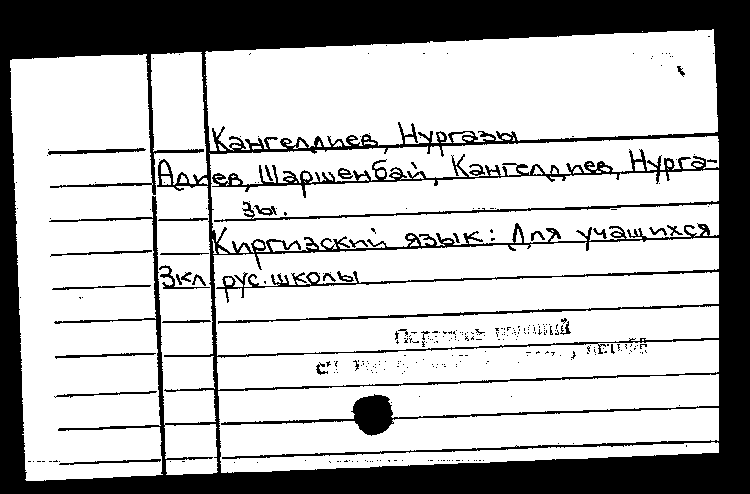 Кангелдиев, Нургазы
Алиев, Шаршенбай, Кангелдиев, Нурга-
зы.
Киргизский язык: Для учащихся
3кл. рус. школы